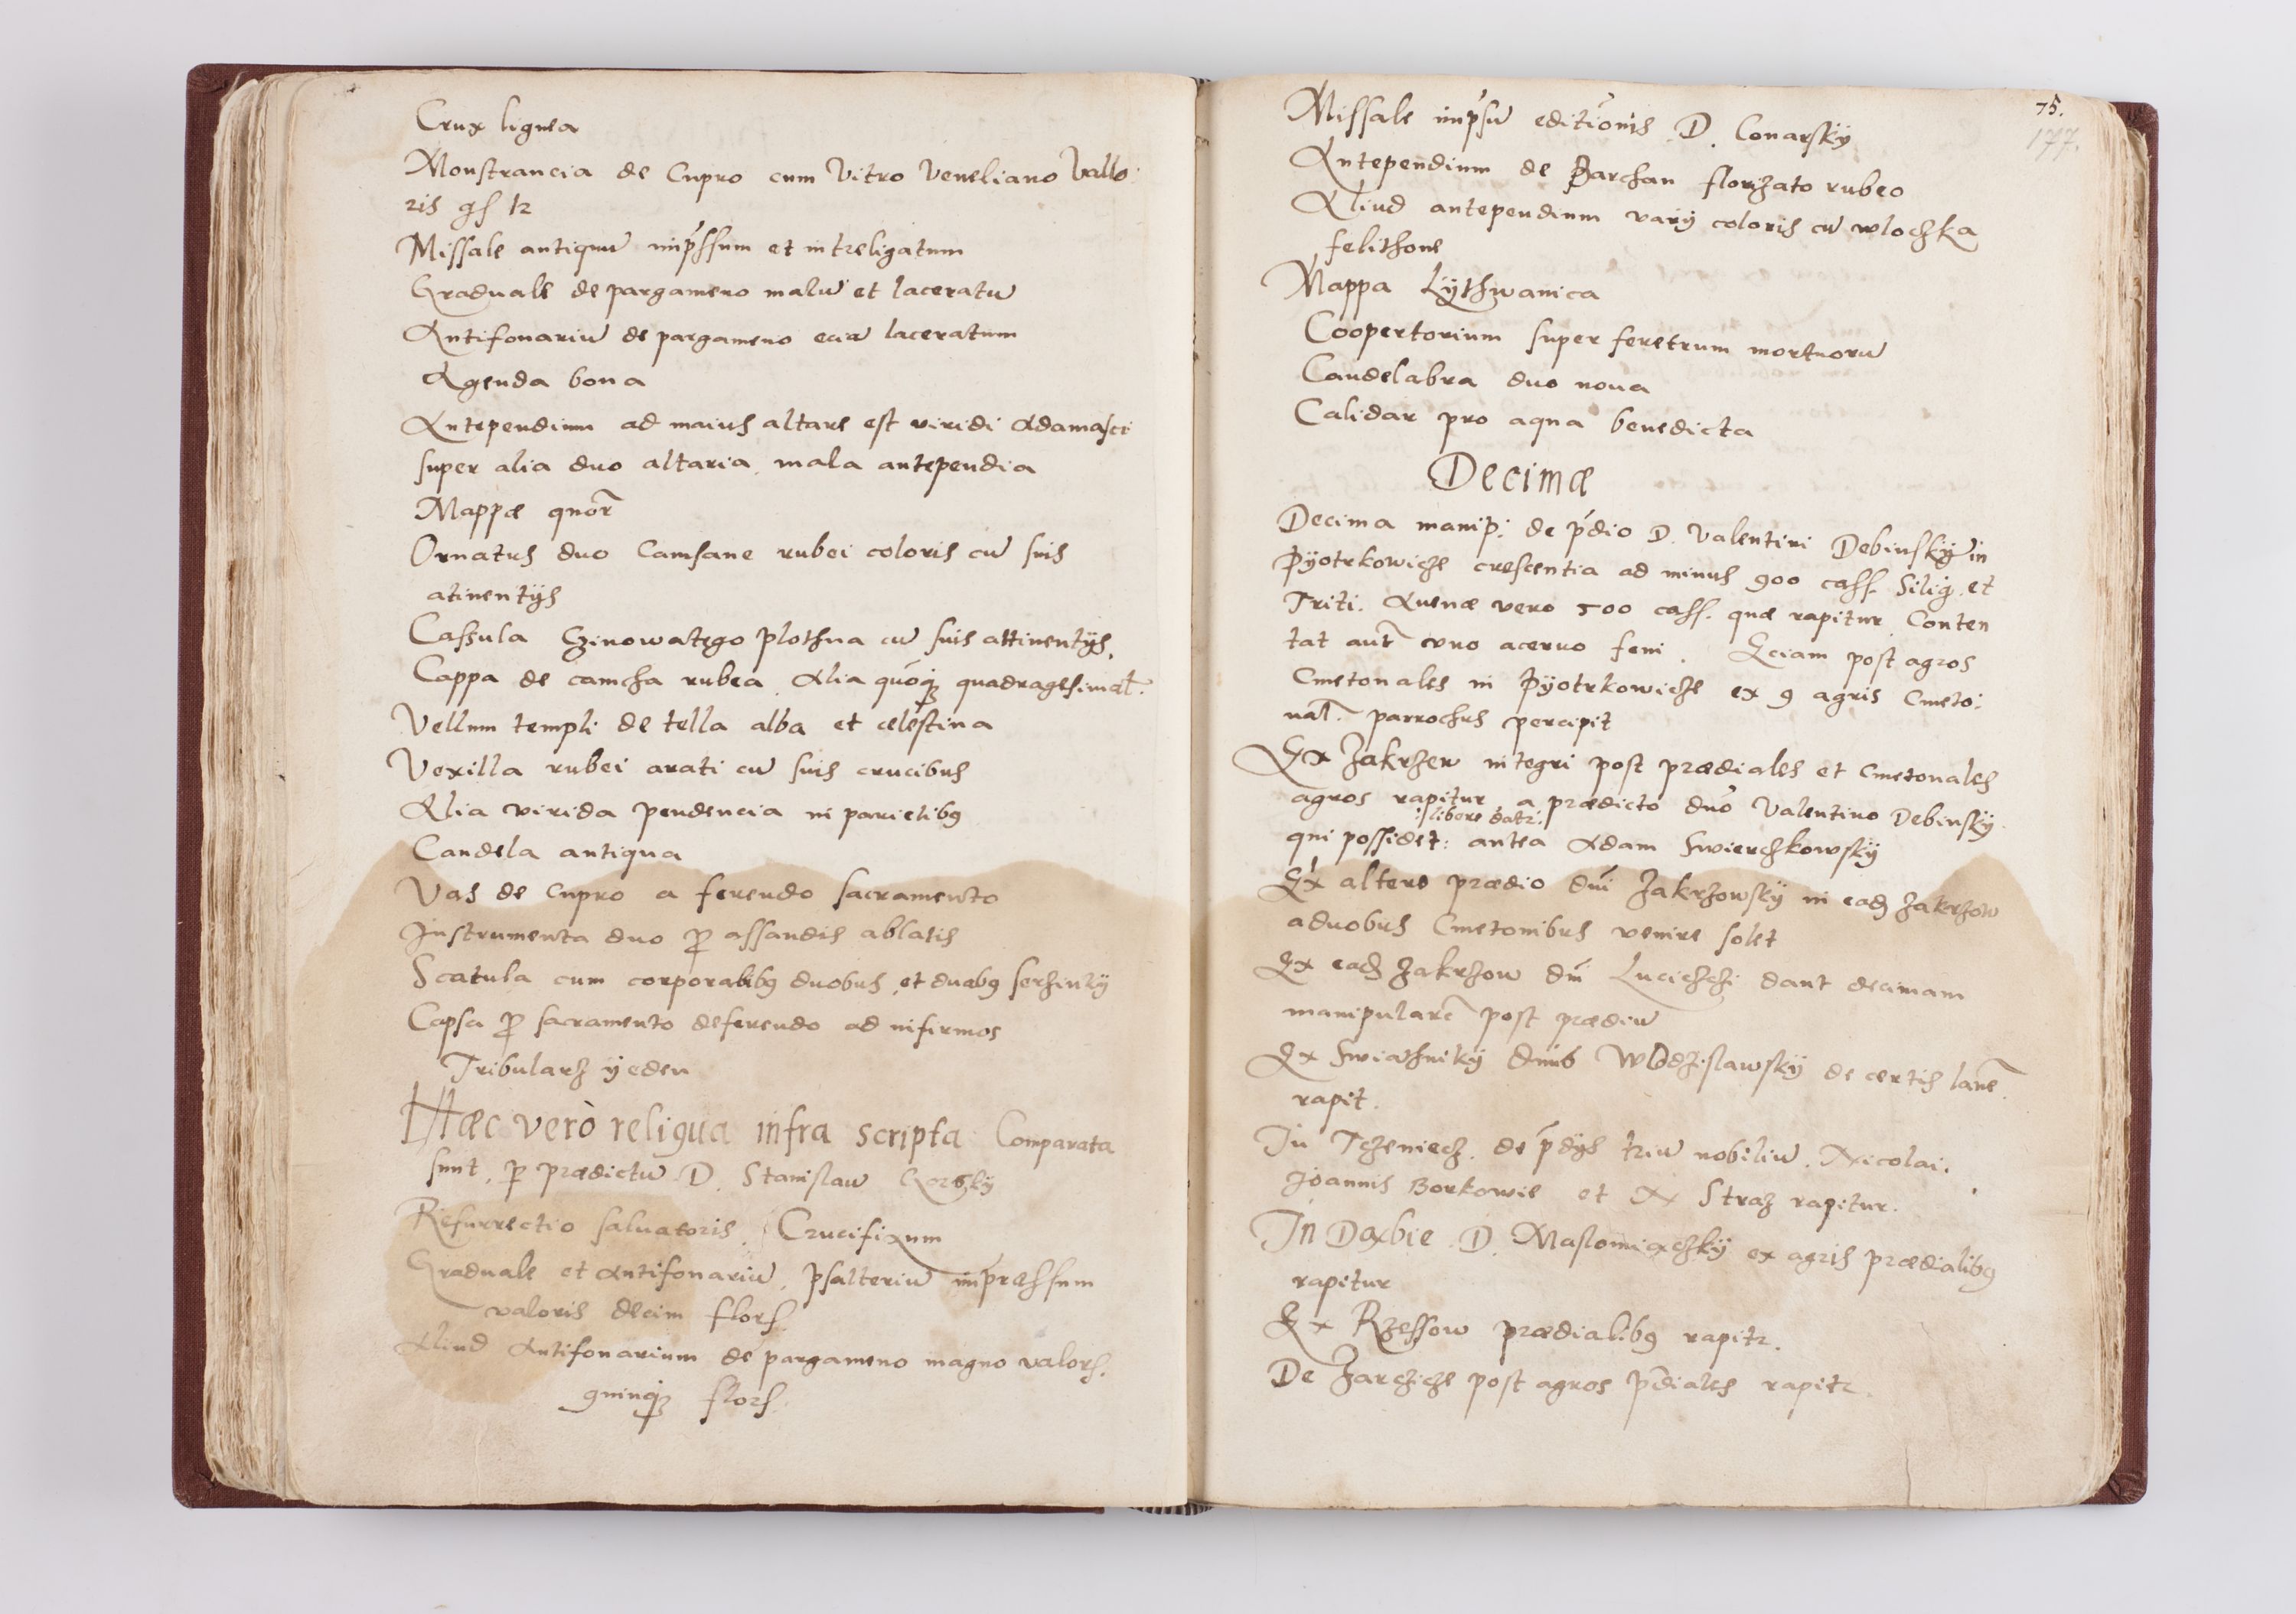 Crux lignea
Monstrancia de Cupro cum Vitro Veneliano Vallo:
ris gſ 12
Missale antiquū imp̄ssum et intreligatum
Graduale de pargameno malū et laceratū
Antifonariū de pargameno eciā laceratum
Agenda bona
Antependium ad maius altare est viridi Adamasci
super alia duo altaria. mala antependia
Mappæ quor̄
Ornatus duo Camsane rubei coloris cū suis
atinentijs
Cassula Czinowatego plothna cū suis attinentijs.
Cappa de camcha rubea. Alia quóq₃ quadragesimal̄.
Vellum templi de tella alba et celestina
Vexilla rubei arati cū suis crucibus
Alia virida pendencia in parietib9
Candela antiqua
Vas de cupro a ferendo sacramento
Instrumenta duo ꝓ assandis ablatis
Scatula cum corporalib9 duobus, et duab9 serzinky
Capsa ꝓ sacramento deferendo ad infirmos
Tribularz yeden
Hæc verò reliqua infra scripta Comparata
sunt, ꝑ prædictū D. Stanislaw Gorsky
Resurrectio saluatoris. Crucifixum
Graduale et Antifonariū. Psalteriū impressum
valoris decim florſ.
Aliud Antifonarium de pargameno magno valorſ.
quinq₃ florſ.
75.
177.
Missale imp̄sū editionis D. Conarskÿ
Antependium de Parchan florizato rubeo
Aliud antependium varij coloris cū wloczka
felithone
Mappa Lÿthwanica
Coopertorium super feretrum mortuorū
Candelabra duo noua
Calidar pro aqua benedicta
Decimæ
Decima manip: de p̄dio D. Valentini Debinskÿ in
Pÿotrkowicze crescentia ad minus 900 cass. Silig. et
Triti. Auenæ vero 500 cass. quæ rapitur. Conten
tat aut̄ vno aceruo feni. Eciam post agros
Cmetonales in Pÿotrkowicze ex 9 agris Cmeto:
nal̄. parrochus percipit
Ex Zakrzew integri post prædiales et Cmetonales
agros rapitur a prædicto dnō Valentino Debinskÿ.
:/libere datr:
qui possidet: antea Adam Swierczkowskÿ
Ex altero prædio dn̄i Zakrzowskÿ in ead₃ Zakrzow
aduobus Cmetonibus venire solet
Ex ead₃ Zakrzow dn̄i Lucziczi dant decimam
manipularē post prædiū
Ex Swiathnikÿ dn̄us Wlodzislawskÿ de certis lane.
rapit.
In Tczeniecz. de p̄dÿs triū nobiliū. Nicolai.
Joannis Borkowie et N Straz rapitur.
In Dąbie. D. Maslomiączkÿ ex agris prædialib9
rapitur
Ex Rzessow prædialib9 rapitr.
De Zarczicze post agros p̄diales rapitr.